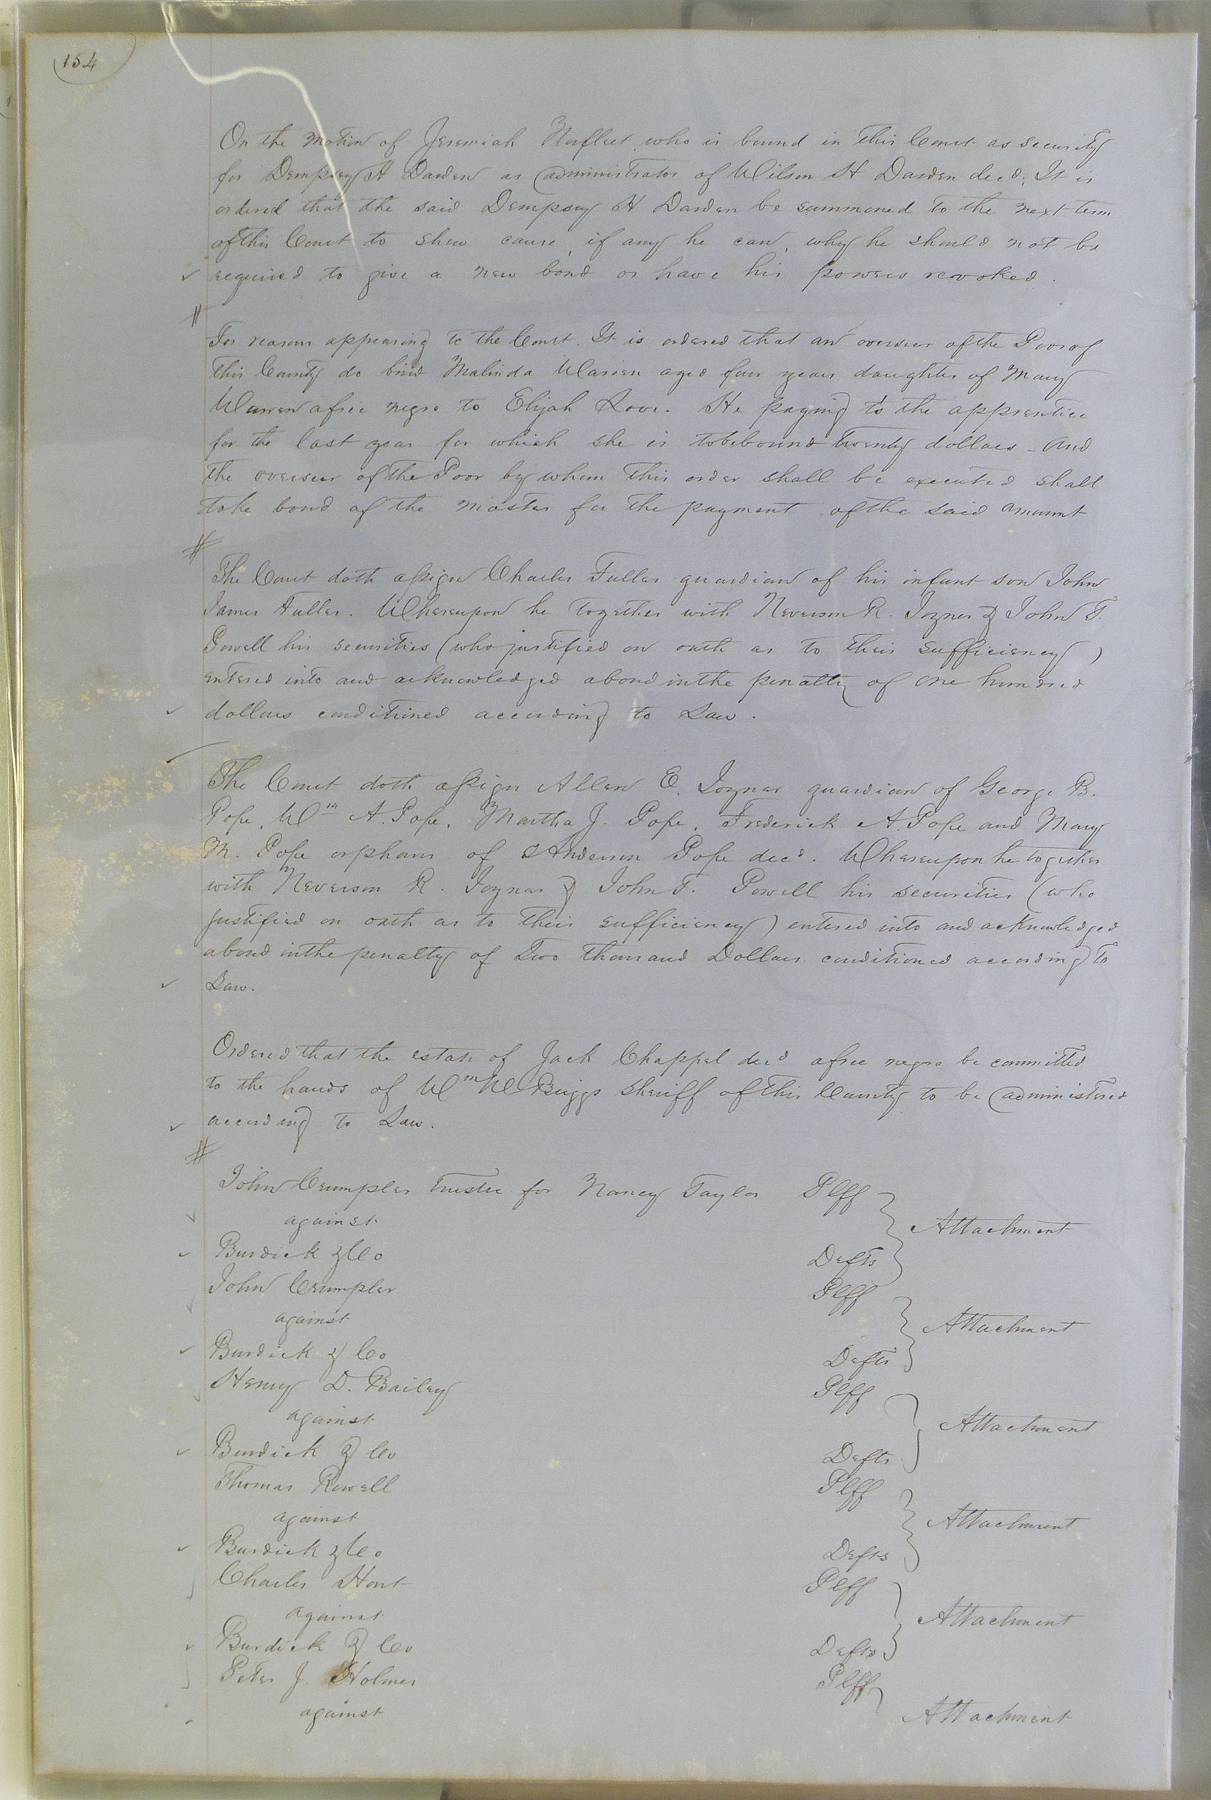 154
On the motion of Jeremiah Norfleet, who is bound in this Court as security
for Dempsey H Darden as administrator of Wilson H Darden decd, It is
ordered that the said Dempsey H Darden be summoned to the next term
of this Court to shew cause, if any he can, why he should not be
required to give a new bond or have his powers revoked.
For reasons appearing to the Court. It is ordered that an overseer of the Poor of
this County do bind Malinda Warren aged four years daughter of Mary
Warren a free negro to Elijah Love. He paying to the apprentice
for the last year for which she is to be bound twenty dollars - and
the overseer of the Poor by whom this order shall be executed shall
take bond of the master for the payment of the said amount
The Court doth assign Charles Fuller guardian of his infant son John
James Fuller. Whereupon he together with Neverson R. Joyner & John T.
Powell his securities (who justified on oath as to their sufficiency)
entered into and acknowledged a bond in the penalty of one hundred
dollars conditioned according to Law.
The Court doth assign Allen E. Joyner guardian of George B.
Pope, Wm A. Pope, Martha J. Pope, Frederick A. Pope and Mary
M. Pope orphans of Anderson Pope decd. Whereupon he together
with Neverson R. Joyner & John T. Powell his securities (who
justified on oath as to their sufficiency) entered into and acknowledged
a bond in the penalty of Two thousand Dollars conditioned according to
Law.
Ordered that the estate of Jack Chappel decd a free negro be committed
to the hands of Wm W Briggs Sheriff of this County to be administered
according to Law.
John Crumpler trustee for Nancy Taylor Plff
against Attachment
Burdick & Co Defts
John Crumpler Plff
against Attachment
Burdick & Co Defts
Henry D. Bailey Plff
against Attachment
Burdick & Co Defts
Thomas Rowell Plff
against Attachment
Burdick & Co Defts
Charles Hart Plff
against Attachment
Burdick & Co Defts
Peter J Holmes Plff
against Attachment